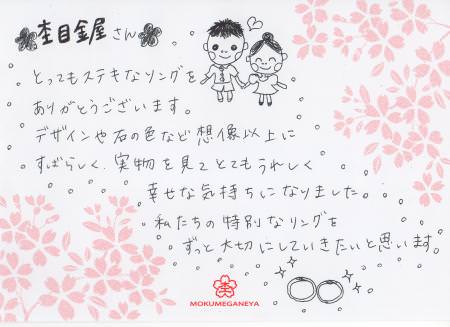 杢目金屋さん
とってもステキなリングを
ありがとうございます。
デザインや石の色など想像以上に
すばらしく、実物を見てとてもうれしく
幸せな気持ちになりました。
私たちの特別なリングを
ずっと大切にしていきたいと思います。
MOKUMEGANEYA